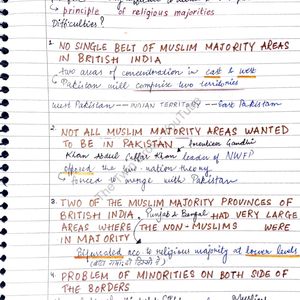 principle of religious majorities
Difficulties?
1. NO SINGLE BELT OF MUSLIM MAJORITY AREAS
IN BRITISH INDIA
two areas of concentration in east & west
Pakistan will comprise two territories
West Pakistan — INDIAN TERRITORY — East Pakistan
2. NOT ALL MUSLIM MAJORITY AREAS WANTED
TO BE IN PAKISTAN
Frontier Gandhi
Khan Abdul Gaffar Khan leader of NWFP
two-nation theory
forced to merge with Pakistan
3. TWO OF THE MUSLIM MAJORITY PROVINCES OF
BRITISH INDIA Punjab & Bengal HAD VERY LARGE
AREAS WHERE THE NON-MUSLIMS WERE
IN MAJORITY
Bifurcated acc to religious majority at lower levels
4. PROBLEM OF MINORITIES ON BOTH SIDE OF
THE BORDERS